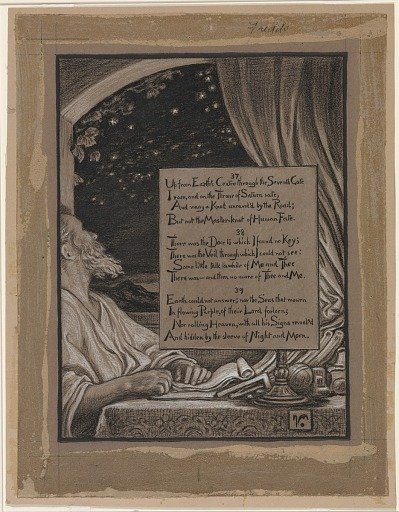 37
Up from Earth's Centre through the Seventh Gate
I rose, and on the Throne of Saturn sate,
And many a Knot unravel'd by the Road;
But not the Master-knot of Human Fate.
38
There was the Door to which I found no Key;
There was the Veil through which I could not see:
Some little talk awhile of Me and Thee
There was — and then no more of Thee and Me.
39
Earth could not answer; nor the Seas that mourn
In flowing Purple, of their Lord forlorn;
Nor rolling Heaven, with all his Signs reveal'd
And hidden by the sleeve of Night and Morn.